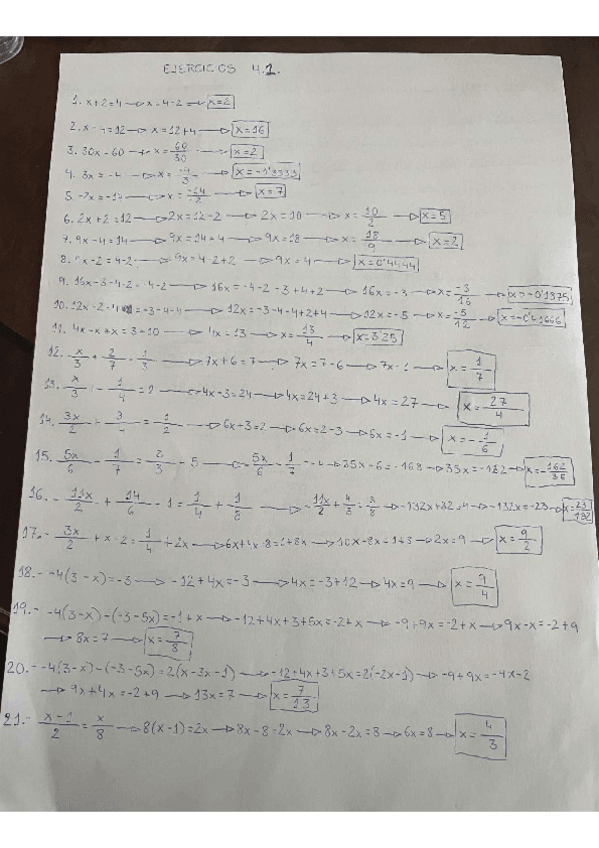 EJERCICIOS 4.1.
1. x+2=4 → x=4-2 → x=2
2. x-4=12 → x=12+4 → x=16
3. 30x=60 → x=60/30 → x=2
4. 3x=-4 → x=-4/3 → x=-1'3333
5. -2x=-14 → x=-14/-2 → x=7
6. 2x+2=12 → 2x=12-2 → 2x=10 → x=10/2 → x=5
7. 9x-4=14 → 9x=14+4 → 9x=18 → x=18/9 → x=2
8. 9x-2=4-2 → 9x=4-2+2 → 9x=4 → x=0'4444
9. 16x-3-4-2=-4-2 → 16x=-4-2-3+4+2 → 16x=-3 → x=-3/16 → x=-0'1875
10. 12x-2-4=-3-4-4 → 12x=-3-4-4+2+4 → 12x=-5 → x=-5/12 → x=-0'41666
11. 4x-x+x=3+10 → 4x=13 → x=13/4 → x=3'25
12. x/3+2/7=1/3 → 7x+6=7 → 7x=7-6 → 7x=1 → x=1/7
13. x/3-1/4=2 → 4x-3=24 → 4x=24+3 → 4x=27 → x=27/4
14. 3x/2+3/=1/2 → 6x+3=2 → 6x=2-3 → 6x=-1 → x=-1/6
15. 5x/6-1/7=2/3-5 → 5x/6-1/7 → 35x-6=-168 → 35x=-162 → x=-162/35
16.- 11x/2+14/6-1=1/4+1/8 → -11x/2+4/3=3/8 → -132x+32 → -132x=-23 → x=23/132
17.- 3x/2+x-2=1/4+2x → 6x+4x-8=1+8x → 10x-8x=1+8 → 2x=9 → x=9/2
18.- -4(3-x)=-3 → -12+4x=-3 → 4x=-3+12 → 4x=9 → x=9/4
19.- -4(3-x)-(-3-5x)=-1+x → -12+4x+3+5x=-2+x → -9+9x=-2+x → 9x-x=-2+9
→ 8x=7 → x=7/8
20.- -4(3-x)-(-3-5x)=2(x-3x-1) → -12+4x+3+5x=2(-2x-1) → -9+9x=-4x-2
→ 9x+4x=-2+9 → 13x=7 → x=7/13
21.- x-1/2=x/8 → 8(x-1)=2x → 8x-8=2x → 8x-2x=8 → 6x=8 → x=4/3